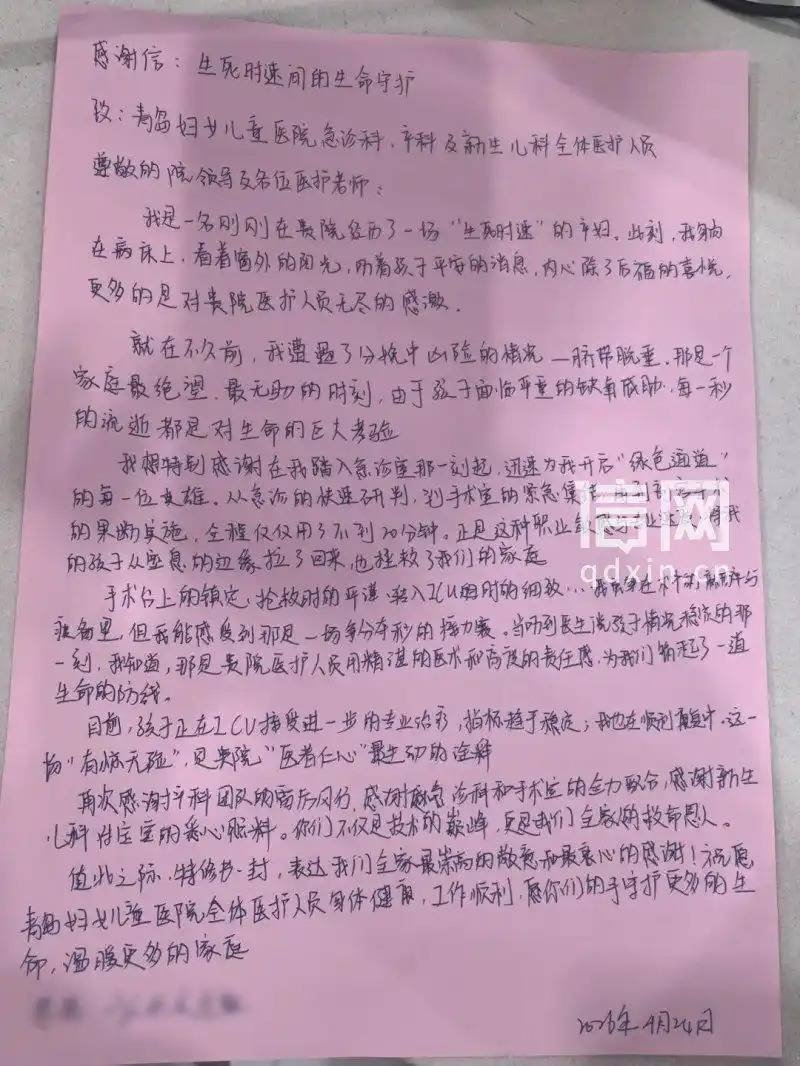 感谢信：生死时速间的生命守护
致：青岛妇女儿童医院急诊科、产科及新生儿科全体医护人员
尊敬的院领导及各位医护老师：
我是一名刚刚在贵院经历了一场“生死时速”的产妇。此刻，我躺
在病床上，看着窗外的阳光，听着孩子平安的消息，内心除了后福的喜悦，
更多的是对贵院医护人员无尽的感激。
就在不久前，我遭遇了分娩中凶险的情况—脐带脱垂。那是一个
家庭最绝望、最无助的时刻，由于孩子面临严重的缺氧威胁，每一秒
的流逝都是对生命的巨大考验
我想特别感谢在我踏入急诊室那一刻起，迅速为我开启“绿色通道”
的每一位英雄。从急诊的快速研判，到手术室的紧急集结，再到
的果断实施，全程仅仅用了不到20分钟。正是这种职业 我
的孩子从窒息的边缘拉了回来，也拯救了我们的家庭
手术台上的镇定，抢救时的 转入ICU时的细致…
但我能感受到那是一场争分夺秒的接力赛。当听到医生说孩子情况稳定的那
一刻，我知道，那是贵院医护人员用精湛的医术和高度的责任感，为我们筑起了一道
生命的防线。
目前，孩子正在ICU接受进一步的专业治疗，指标趋于稳定；我也在顺利康复中。这一
场“有惊无险”，是贵院“医者仁心”最生动的诠释
再次感谢产科团队的雷厉风行，感谢 急诊科和手术室的全力配合，感谢新生
儿科对宝宝的悉心照料。你们不仅是技术的巅峰，更是我们全家的救命恩人。
值此之际，特修书一封，表达我们全家最崇高的敬意和最衷心的感谢！祝愿
青岛妇女儿童医院全体医护人员身体健康，工作顺利，愿你们的手守护更多的生
命，温暖更多的家庭
2026年4月24日
信网
qdxin.cn